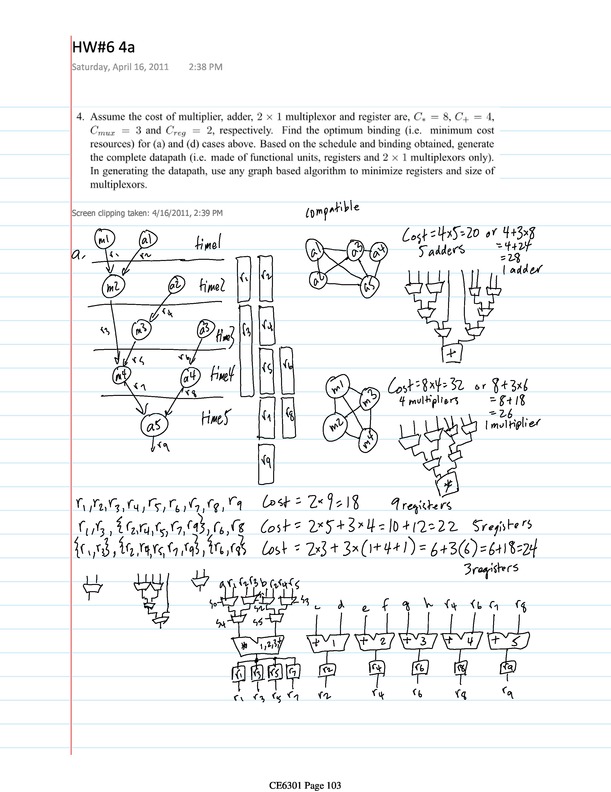 HW#6 4a
Saturday, April 16, 2011 2:38 PM
4. Assume the cost of multiplier, adder, 2 × 1 multiplexor and register are, C* = 8, C+ = 4,
Cmux = 3 and Creg = 2, respectively. Find the optimum binding (i.e. minimum cost
resources) for (a) and (d) cases above. Based on the schedule and binding obtained, generate
the complete datapath (i.e. made of functional units, registers and 2 × 1 multiplexors only).
In generating the datapath, use any graph based algorithm to minimize registers and size of
multiplexors.
Screen clipping taken: 4/16/2011, 2:39 PM
compatible
a.
m1 a1 time1
r1 r2
m2 a2 time2
r4
r3 m3 a3 time3
r5 r6
m4 a4 time4
r7 r8
a5 time5
r9
r1 r2
r3 r4
r5 r6
r7 r8
r9
a1 a3 a4
a2 a5
Cost = 4x5=20 or 4+3x8
5 adders = 4+24
= 28
1 adder
+
m1 m3
m2 m4
Cost = 8x4=32 or 8+3x6
4 multipliers = 8+18
= 26
1 multiplier
*
r1, r2, r3, r4, r5, r6, r7, r8, r9 Cost = 2x9=18 9 registers
r1, r3, {r2, r4, r5, r7, r9}, r6, r8 Cost = 2x5+3x4=10+12=22 5 registers
{r1, r3}, {r2, r4, r5, r7, r9}, {r6, r8} Cost = 2x3+3x(1+4+1)=6+3(6)=6+18=24
3 registers
c d e f g h r4 r6 r7 r8
* 1,2,3,4 + 1 + 2 + 3 + 4 + 5
r1 r3 r5 r7 r2 r4 r6 r8 r9
r1 r3 r5 r7 r2 r4 r6 r8 r9
CE6301 Page 103